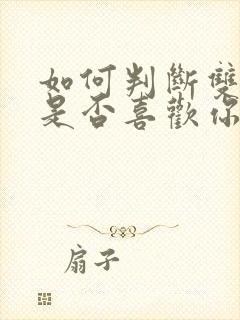 如何判斷雙
是否喜歡你
扇子